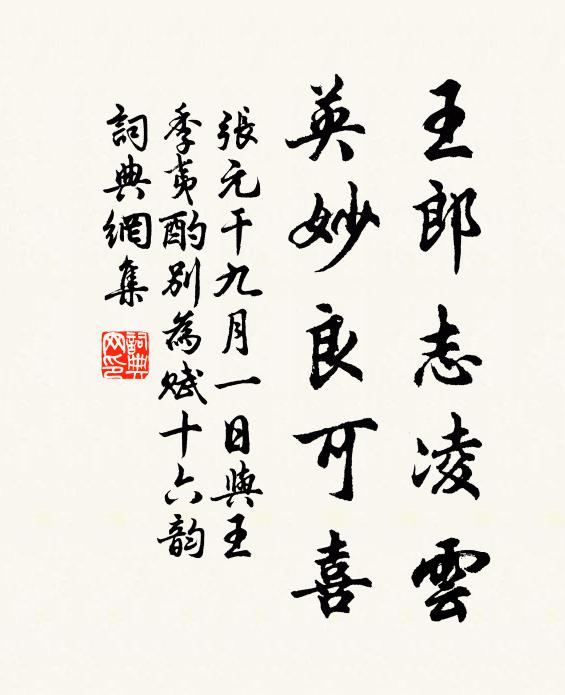 王郎志凌雲
英妙良可喜
張元干九月一日與王
季夷酌別為賦十六韵
詞典網集
詞典
网印